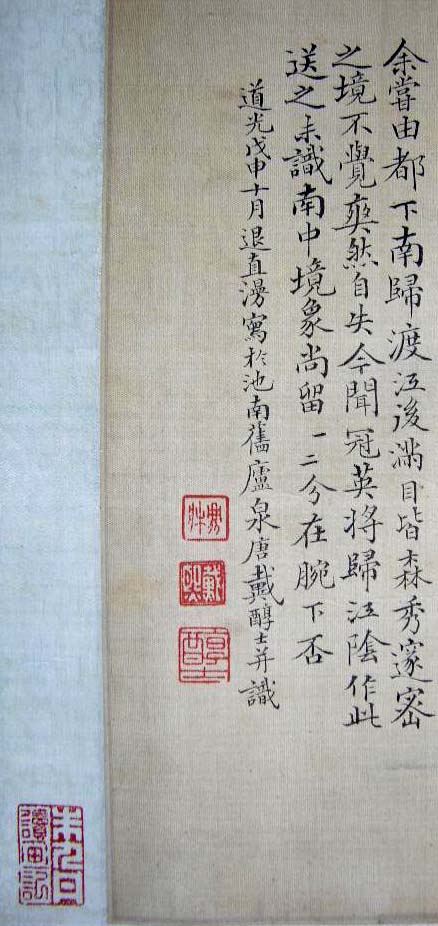 余嘗由都下南歸渡江後滿目皆森秀邃密
之境不覺爽然自失今聞冠英將歸江陰作此
送之未識南中境象尚留一二分在腕下否
道光戊申十月退直漫寫於池南舊廬泉唐戴醇士并識
鹿牀
戴熙
醇士